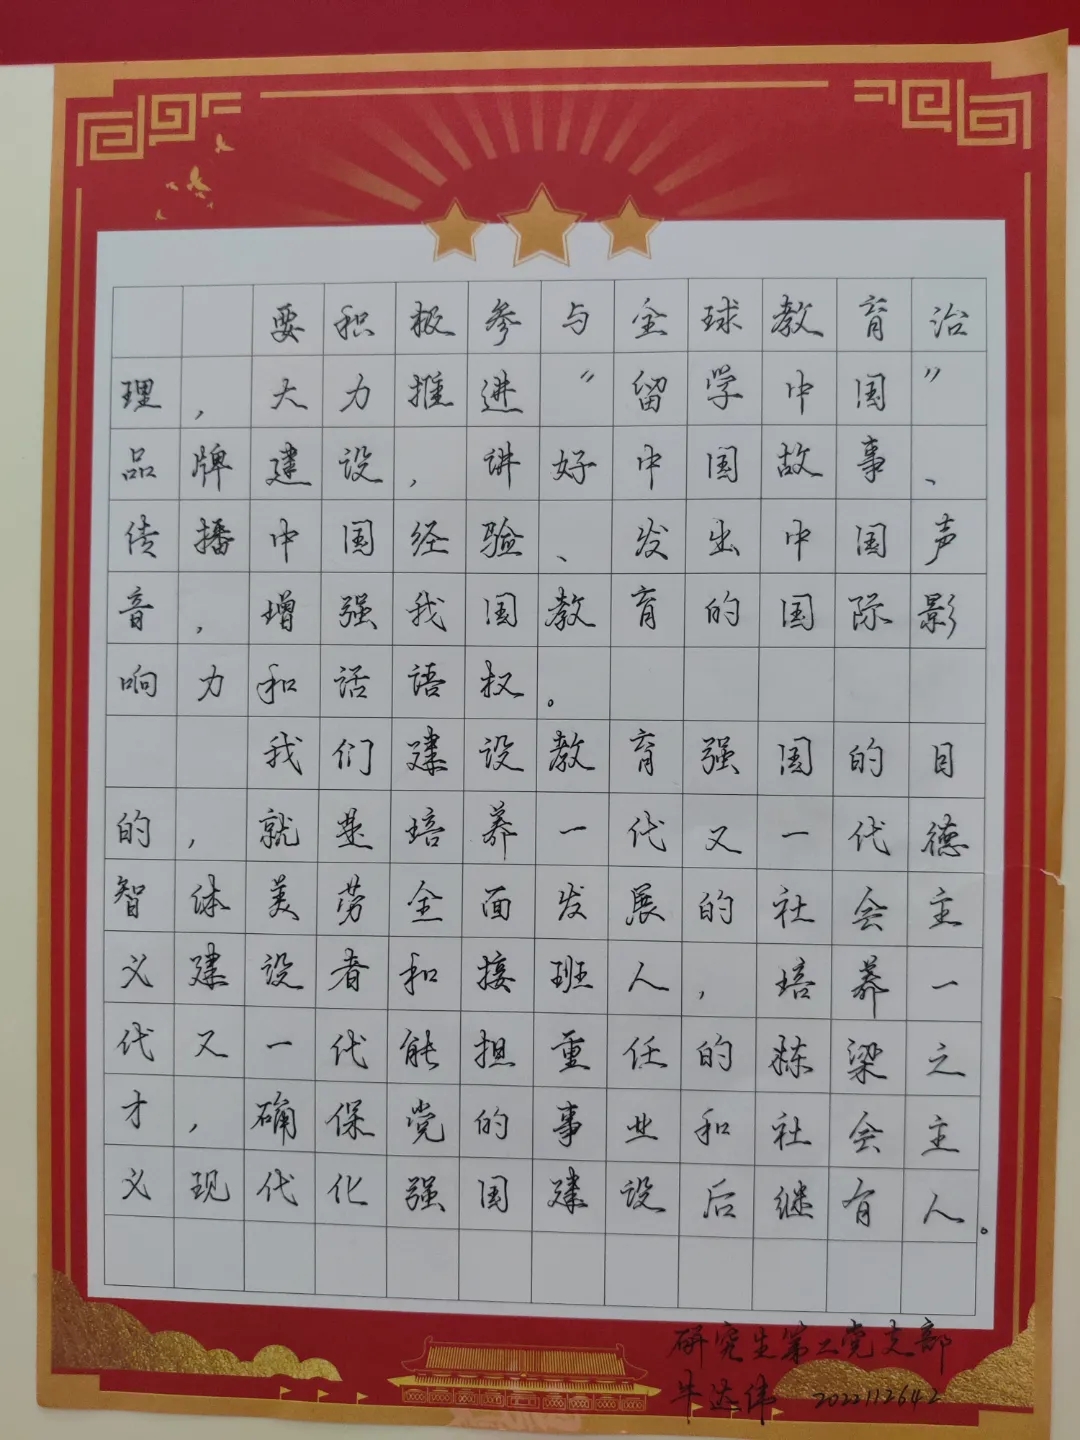 要积极参与全球教育治
理，大力推进“留学中国”
品牌建设，讲好中国故事、
传播中国经验、发出中国声
音，增强我国教育的国际影
响力和话语权。
我们建设教育强国的目
的，就是培养一代又一代德
智体美劳全面发展的社会主
义建设者和接班人，培养一
代又一代能担重任的栋梁之
才，确保党的事业和社会主
义现代化强国建设后继有人。
研究生第二党支部
牛达伟 2022112642